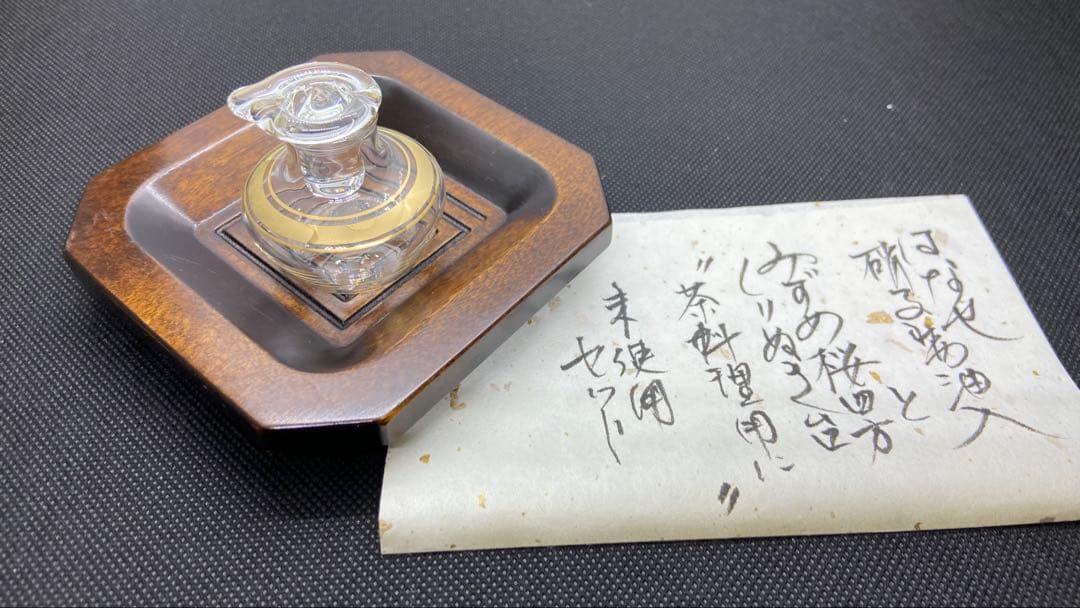 硝子醤油入
と
みずめ桜四方
くりぬき台
"茶料理用に"
未使用
セット